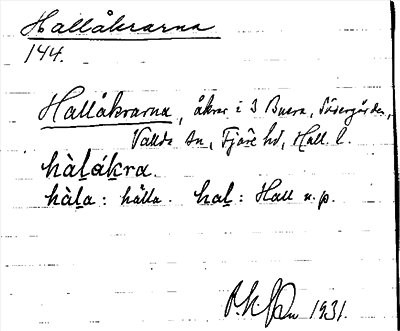 Hallåkrarna
144.
Hallåkrarna, åkrar i 3 Buera, Södergården,
Vallda sn, Fjäre hd, Hall. l.
hàḻáḵra.
hàḻa: hålla. haḻ: Hall n.p.
1931.